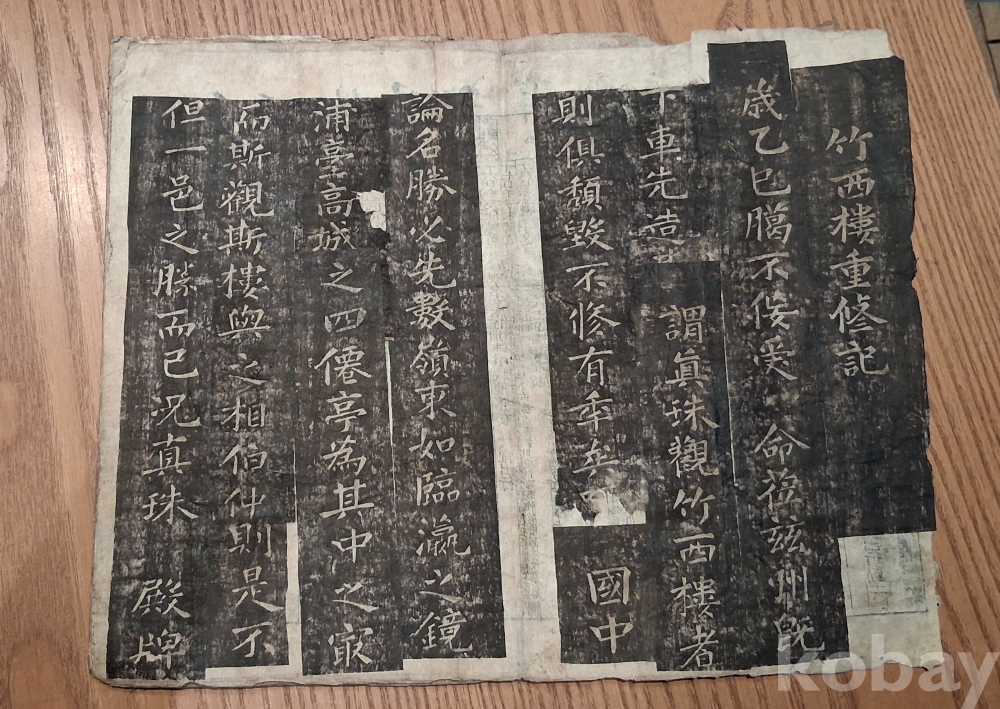 竹西樓重修記
歲乙巳臈不佞受 命莅玆州旣
下車先造 謂眞珠觀竹西樓者
則俱頹毀不修有年矣 國中
論名勝必先數嶺東如臨瀛之鏡
浦亭高城之四僊亭為其中之㝡
而斯觀斯樓與之相伯仲則是不
但一邑之勝而已况真珠 殿牌
kobay